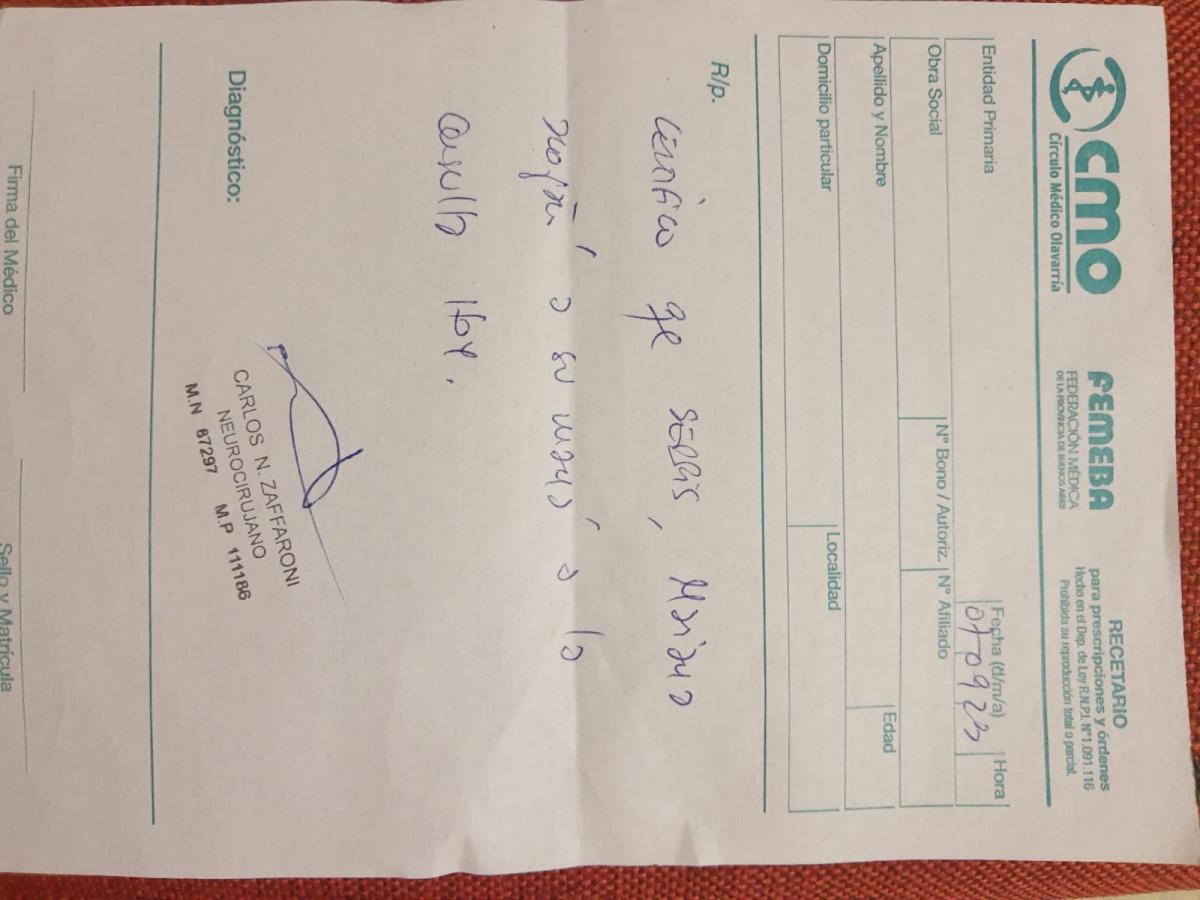 CMO
Círculo Médico Olavarría
FEMEBA
FEDERACIÓN MÉDICA
DE LA PROVINCIA DE BUENOS AIRES
RECETARIO
para prescripciones y órdenes
Hecho en el Dep. de Ley R.N.P.I. Nº1.091.116
Prohibida su reproducción total o parcial.
Entidad Primaria
Fecha (d/m/a)
Hora
070923
Obra Social
Nº Bono / Autoriz.
Nº Afiliado
Apellido y Nombre
Edad
Domicilio particular
Localidad
R/p.
Certifico qe Mariana
a su mamá a la
consulta Hoy.
CARLOS N. ZAFFARONI
NEUROCIRUJANO
M.N 67297 M.P 111186
Diagnóstico:
Firma del Médico
Sello y Matrícula